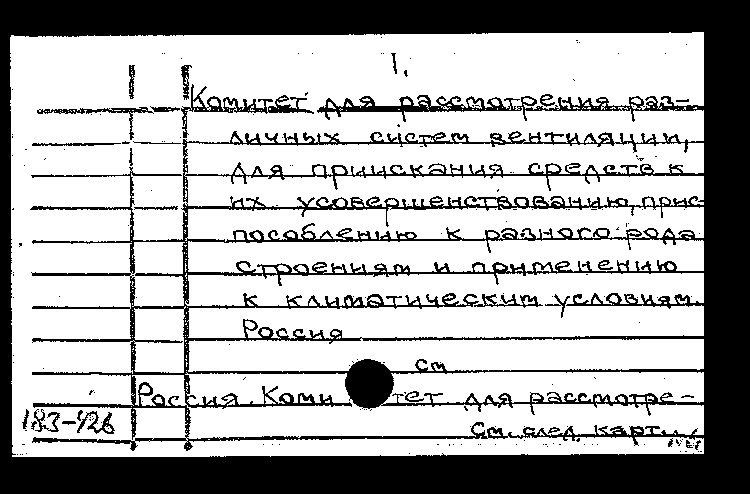 1.
Комитет для рассмотрения раз-
личных систем вентиляции,
для приискания средств к
их усовершенствованию, прис-
пособлению к разного рода
строениям и применению
к климатическим условиям.
Россия
см
Россия. Комитет для рассмотре-
183-426
См. след. карт.